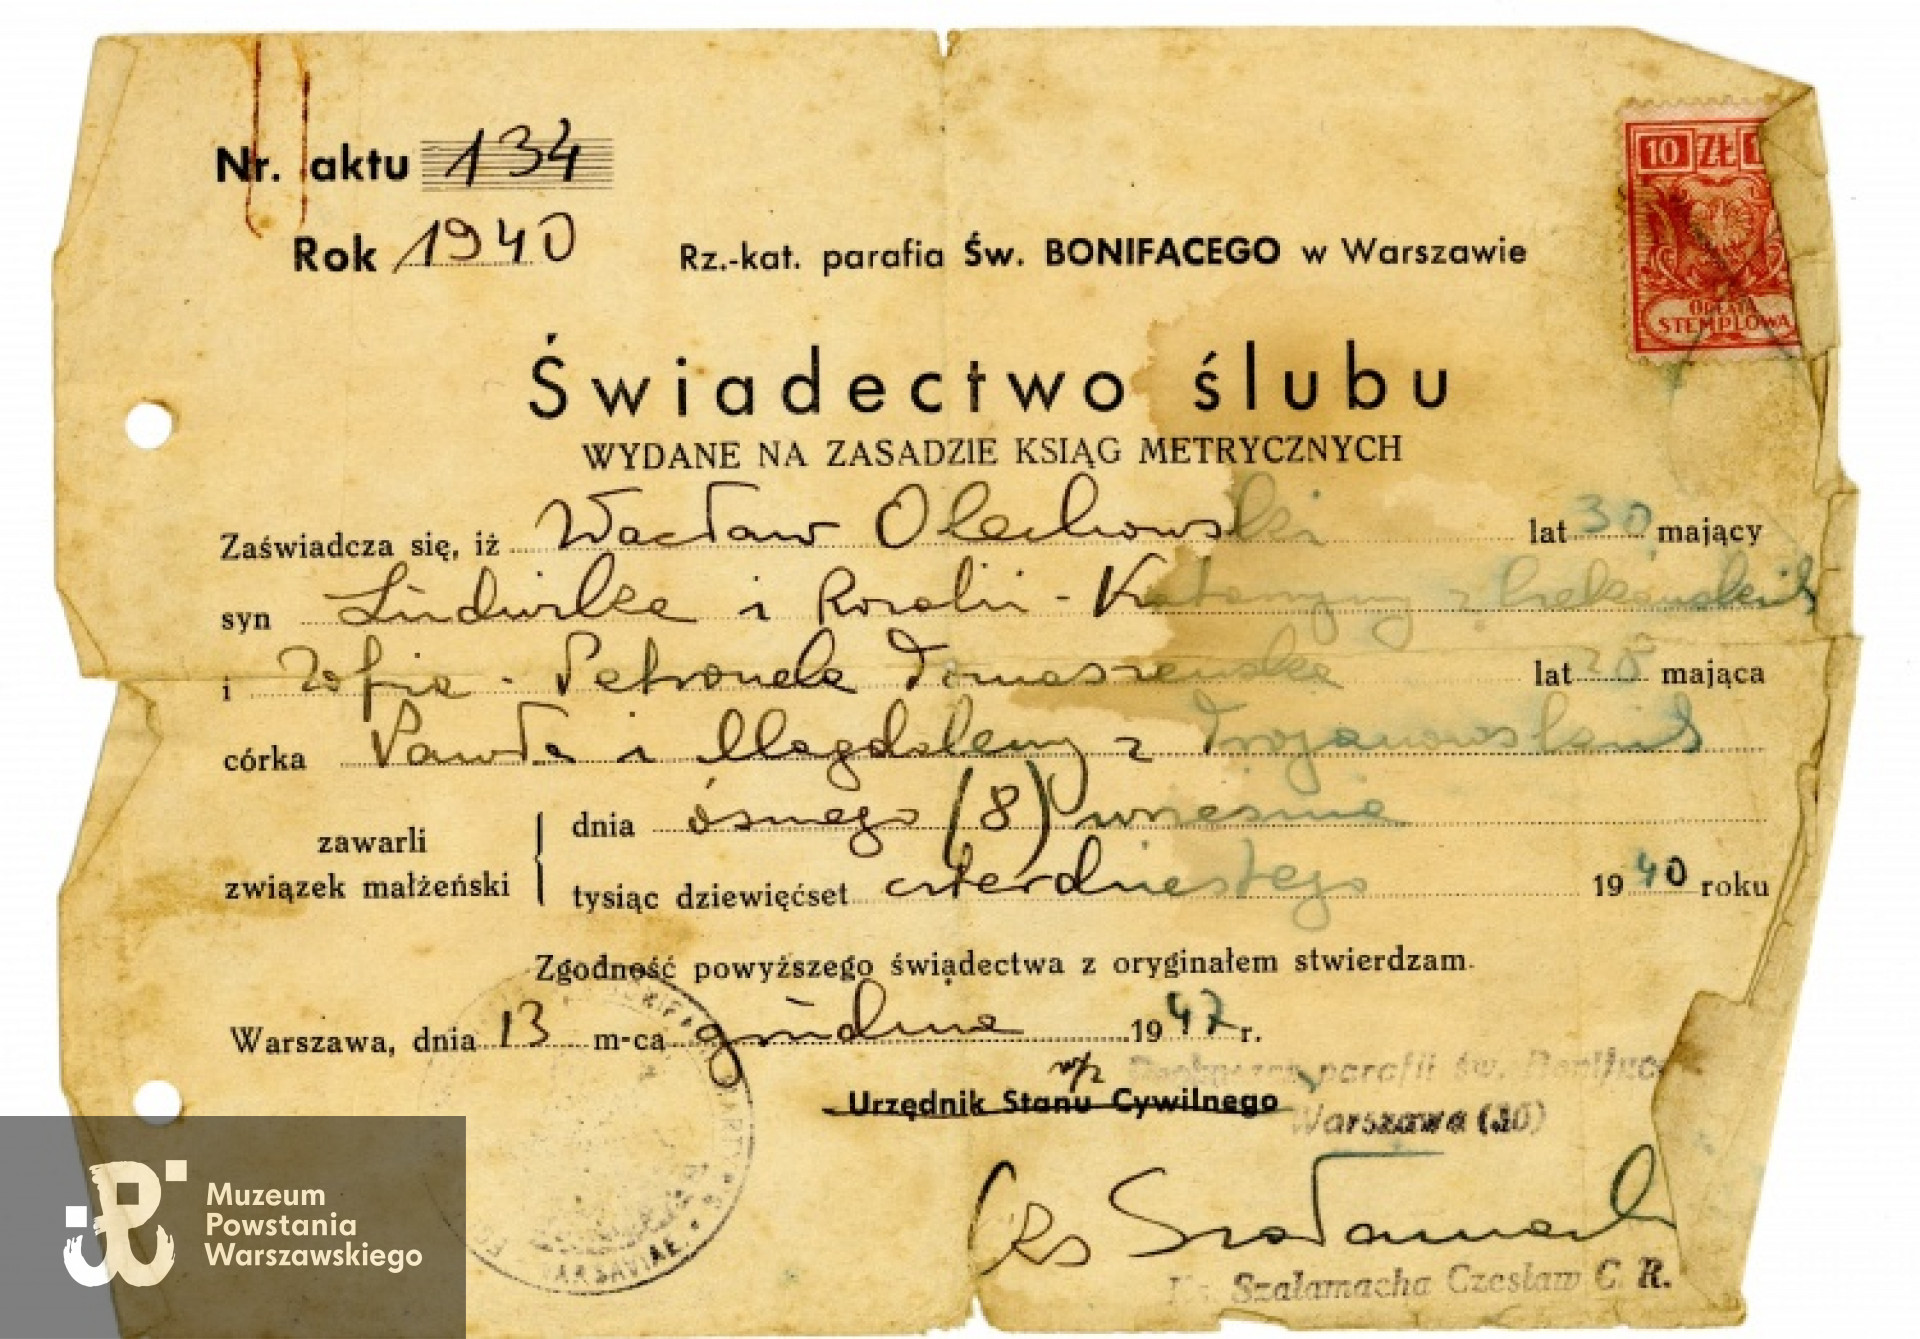 Nr. aktu 134
10 ZŁ 1
Rok 1940
Rz.-kat. parafia Św. BONIFACEGO w Warszawie
OPŁATA
STEMPLOWA
Świadectwo ślubu
WYDANE NA ZASADZIE KSIĄG METRYCZNYCH
Zaświadcza się, iż Wacław Olechowski lat 30 mający
syn Ludwika i Rozalii - Katarzyny z
i Zofia - Petronela Tomaszewska lat mająca
córka Pawła i Magdaleny z Trojanowskich
zawarli związek małżeński
dnia ósmego (8) września
tysiąc dziewięćset czterdziestego 1940 roku
Zgodność powyższego świadectwa z oryginałem stwierdzam.
Warszawa, dnia 13 m-ca grudnia 1947 r.
w/z Proboszcza parafii św. Bonifac
Urzędnik Stanu Cywilnego
Warszawa (30)
VARSAVIAE
Ks Szałamach
Ks. Szałamacha Czesław C. R.
Muzeum
Powstania
Warszawskiego